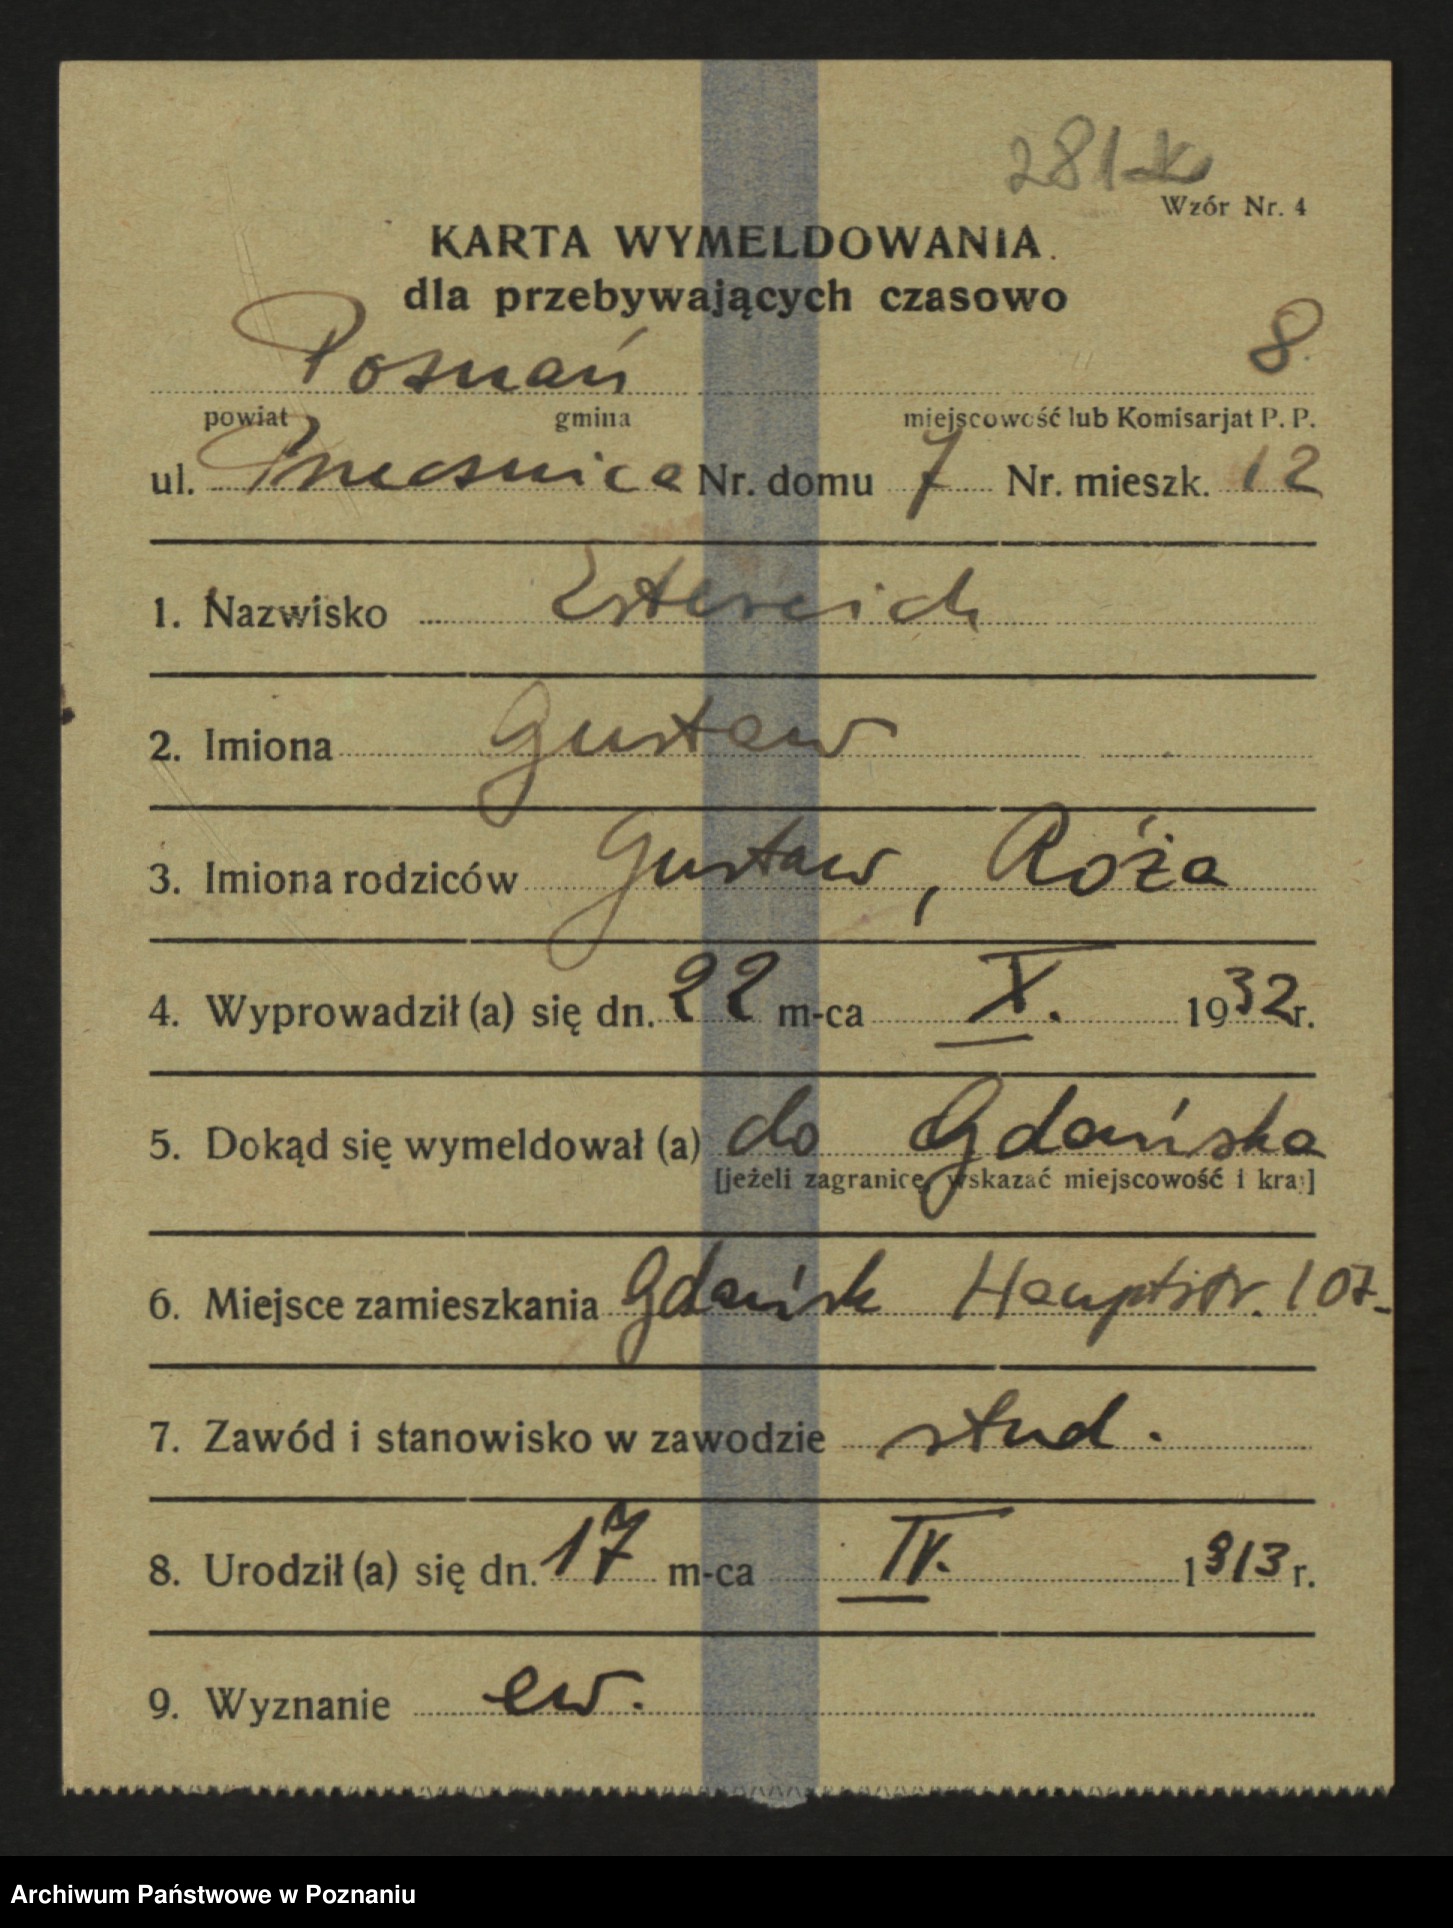 281-K
Wzór Nr. 4
KARTA WYMELDOWANIA
dla przebywających czasowo
Poznań 8
powiat gmina miejscowość lub Komisarjat P. P.
ul. Przecznica Nr. domu 7 Nr. mieszk. 12
1. Nazwisko Estereich
2. Imiona Gustaw
3. Imiona rodziców Gustaw, Róża
4. Wyprowadził (a) się dn. 22 m-ca X. 1932 r.
5. Dokąd się wymeldował (a) do Gdańska
[jeżeli zagranicę, wskazać miejscowość i kraj]
6. Miejsce zamieszkania Gdańsk Hauptstr. 107-
7. Zawód i stanowisko w zawodzie stud.
8. Urodził (a) się dn. 17 m-ca IV. 1913 r.
9. Wyznanie ew.
Archiwum Państwowe w Poznaniu